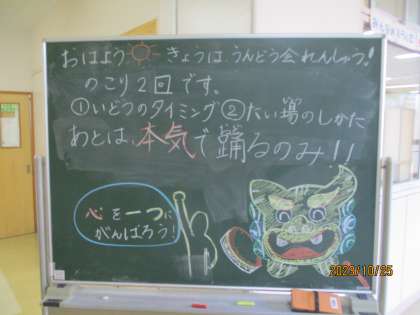 おはよう きょうは、うんどう会れんしゅう!
のこり2回です。
①いどうのタイミング②たい場のしかた
あとは、本気で踊るのみ!!
心を一つに
がんばろう!
2023/10/25